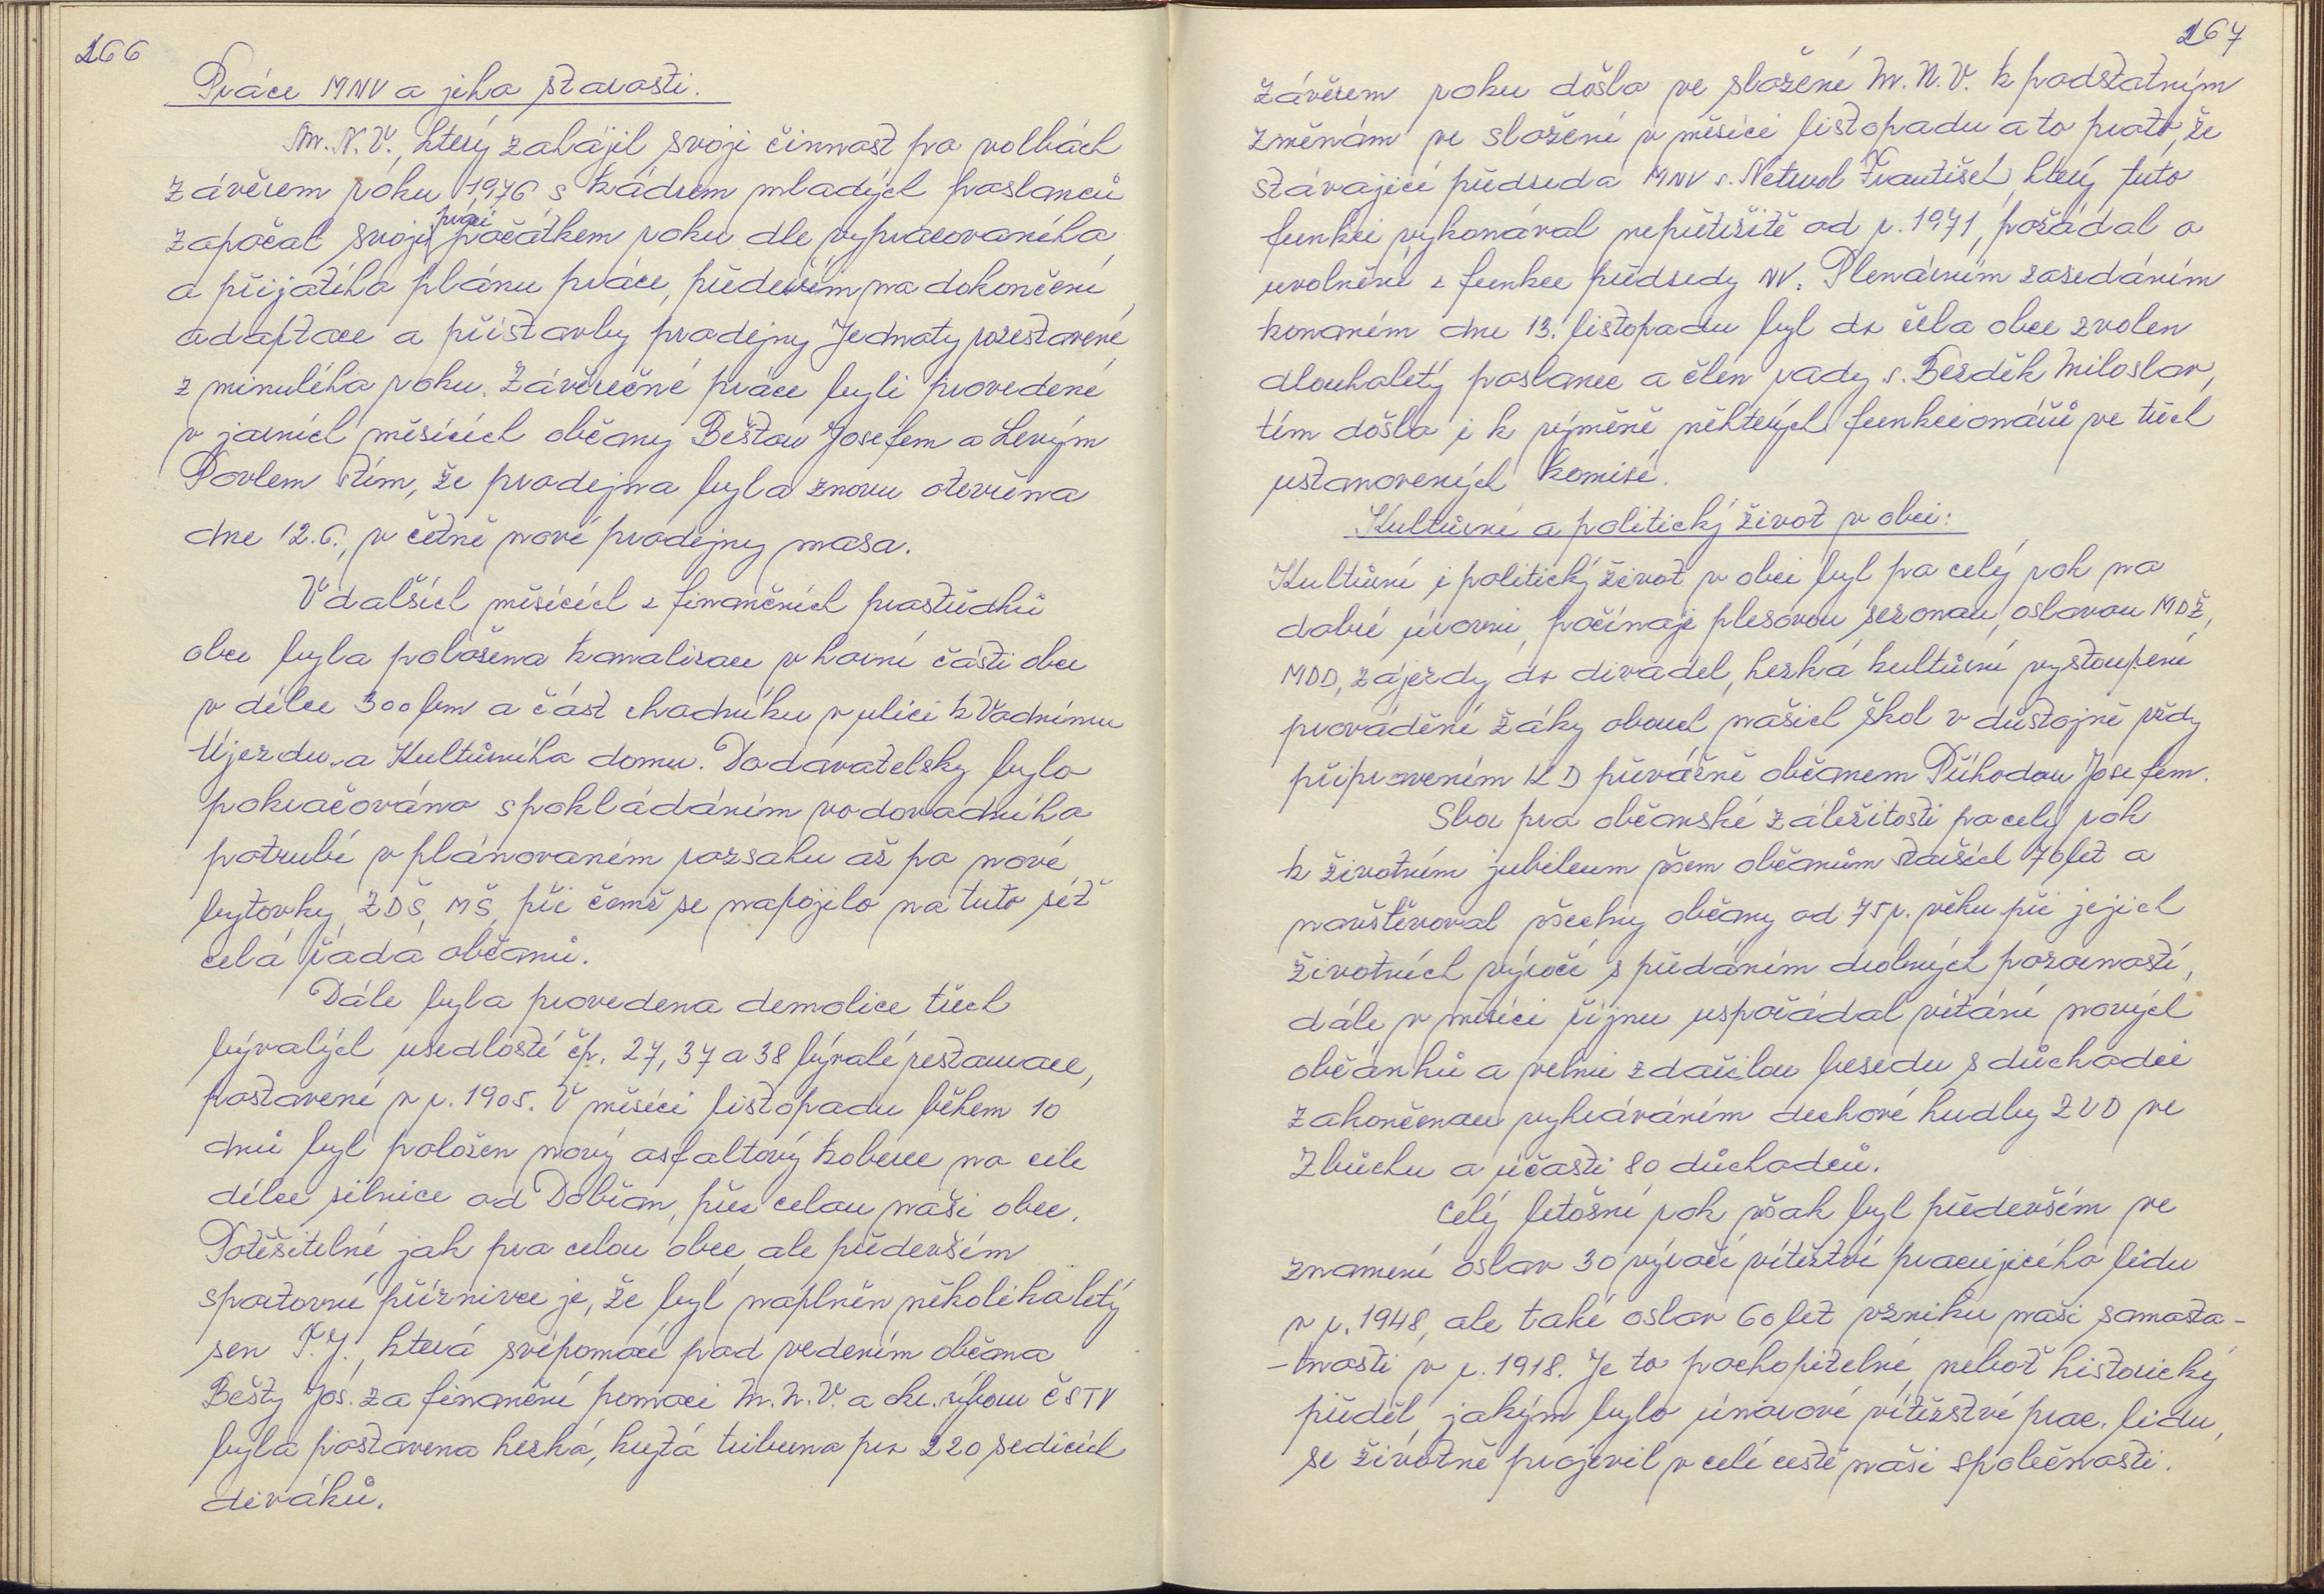 166
Práce MNV a jeho starosti.
M.N.V., který zahájil svoji činnost po volbách
závěrem roku 1976 s kádrem mladých poslanců
započal svoji práci počátkem roku dle vypracovaného
a přijatého plánu práce, především na dokončení
adaptace a přístavby prodejny Jednoty rozestavené
z minulého roku. Závěrečné práce byli provedené
v jarních měsících občany Beštou Josefem a Levým
Pavlem stím, že prodejna byla znovu otevřena
dne 12.6., v četně nové prodejny masa.
V dalších měsících z finančních prostředků
obce byla položena kanalisace v horní části obce
v délce 300 bm a část chodníku v ulici k Vodnímu
Újezdu a Kulturního domu. Dodavatelsky bylo
pokračováno s pokládáním vodovodního
potrubí v plánovaném rozsahu až po nové
bytovky, ZDŠ, MŠ, při čemž se napojilo na tuto síť
celá řada občanů.
Dále byla provedena demolice třech
bývalých usedlostí čp. 27, 37 a 38 bývalé restaurace,
postavení v r. 1905. V měsíci listopadu během 10
dnů byl položen nový asfaltový koberec na celé
délce silnice od Dobřan, přes celou naši obec.
Potěšitelné, jak pro celou obec, ale především
sportovní příznivce je, že byl naplněn několikaletý
sen T.J., která svépomocí pod vedením občana
Bešty Jos. za finanční pomoci M.N.V. a okr. výboru ČSTV
byla postavena hezká, krytá tribuna pro 220 sedících
diváků.
167
Závěrem roku došlo ve složení M.N.V. k podstatným
změnám ve složení v měsíci listopadu a to proto, že
stávající předseda MNV s. Netrval František, který tuto
funkci vykonával nepřetržitě od r. 1971, požádal o
uvolnění z funkce předsedy NV. Plenárním zasedáním
konaném dne 13. listopadu byl do čela obce zvolen
dlouholetý poslanec a člen rady s. Bezděk Miloslav,
tím došlo i k výměně některých funkcionářů ve třech
ustanovených komisí.
Kulturní a politický život v obci:
Kulturní i politický život v obci byl po celý rok na
dobré úrovni, počínaje plesovou sezonou, oslavou MDŽ,
MDD, zájezdy do divadel, hezká kulturní vystoupení
provádění žáky obouch našich škol v důstojně vždy
připraveném KD převážně občanem Příhodou Josefem.
Sbor pro občanské záležitosti po celý rok
k životním jubileum všem občanům starších 70 let a
navštěvoval všechny občany od 75 r. věku při jejich
životních výročí s předáním drobných pozorností,
dále v měsíci říjnu uspořádal vítání nových
občánků a velmi zdařilou besedu s důchodci
zakončenou vyhráváním dechové hudby ZUD ve
Zbůchu a účasti 80 důchodců.
Celý letošní rok však byl především ve
znamení oslav 30 výročí vítězství pracujícího lidu
v r. 1948, ale také oslav 60 let vzniku naši samosta-
-tnosti v r. 1918. Je to pochopitelné, neboť historický
předěl, jakým bylo únorové vítězství prac. lidu,
se životně projevil v celé cestě naši společnosti.